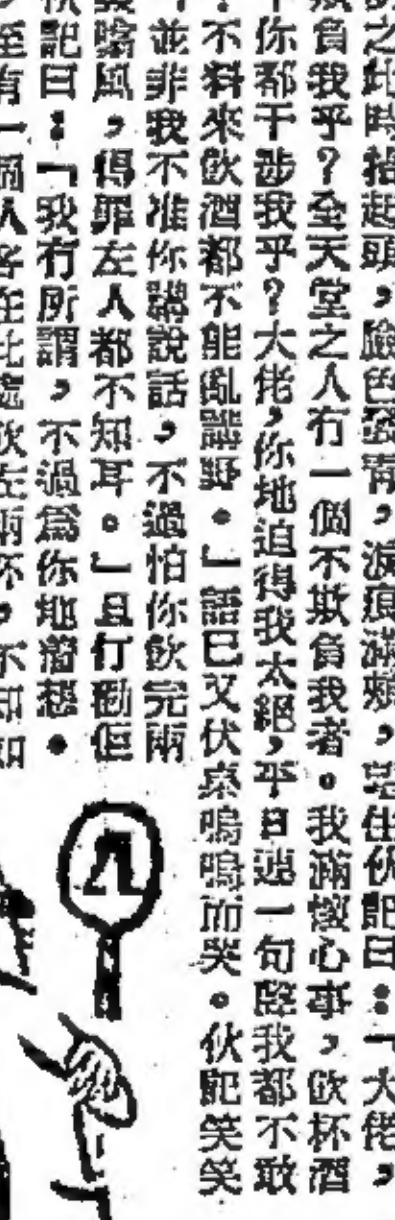 之此時抬起頭，臉色發青，淚痕滿頰，望住伙記曰：「大佬，
負我乎？全天堂之人冇一個不欺負我者。我滿懷心事，飲杯酒
你都干涉我乎？大佬，你地迫得我太絕，平日連一句壓我都不敢
不料來飲酒都不能亂講野。」語已又伏桌嗚嗚而哭。伙記笑笑
並非我不准你講說話，不過怕你飲完兩
風，得罪左人都不知耳。」且打動佢
記曰：「我冇所謂，不過為你地着想。
至有一個人客在此處飲左兩杯，不知
八